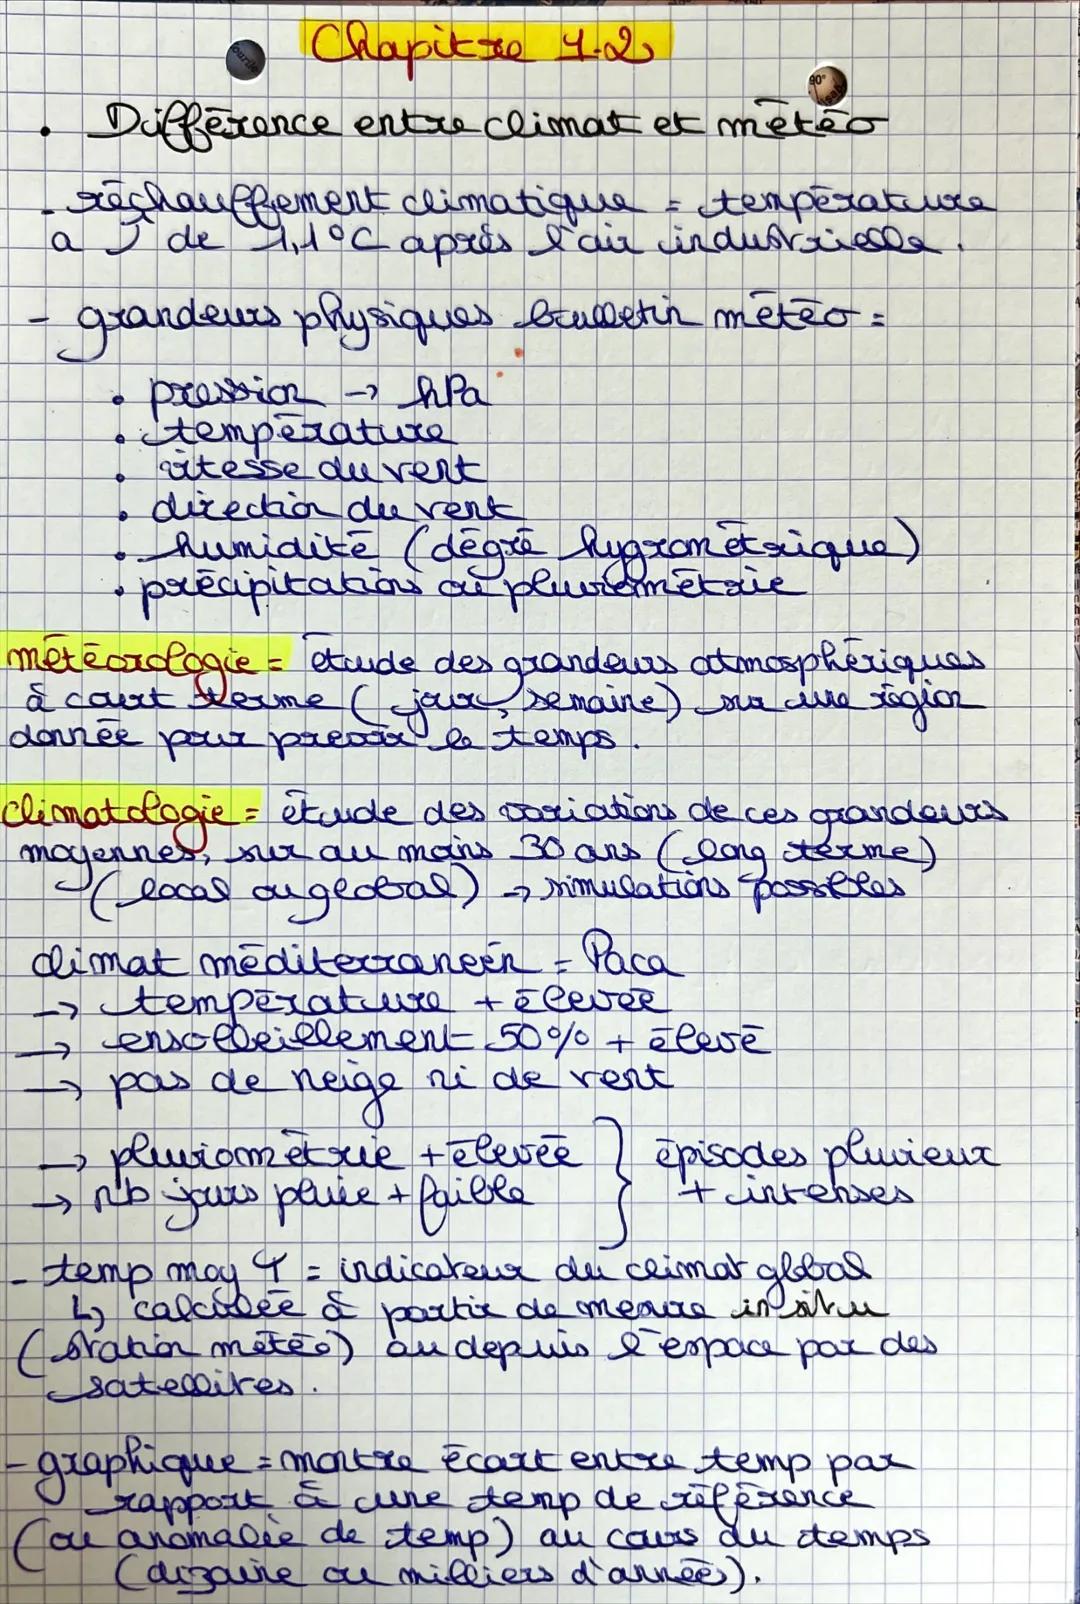 Chapitre 1.2
• Différence entre climat et météo
- réchauffement climatique = température
a ↑ de 1,1°C après l'air industrielle.
- grandeurs physiques bulletin météo =
• pression → hPa
• température
• vitesse du vent
• direction du vent
• humidité (dégré hygrométrique)
• précipitations ou pluviométrie
météorologie = étude des grandeurs atmosphériques
à court terme (jour, semaine) sur une région
donnée pour prévoir le temps.
climatologie = étude des variations de ces grandeurs
moyennes, sur au moins 30 ans (long terme)
(local ou global) → simulations possibles
climat méditerranéen = Paca
→ température + élevée
→ ensolleillement 50% + élevé
→ pas de neige ni de vent
→ pluviométrie + élevée } épisodes pluvieux
→ nb jours pluie + faible + intenses
- temp moy = indicateur du climat global
↳ calculée à partir de mesure in situ
(station météo) ou depuis l'espace par des
satellites.
- graphique = montre écart entre temp par
rapport à une temp de référence
(ou anomalie de temp) au cours du temps
(dizaine ou milliers d'année).